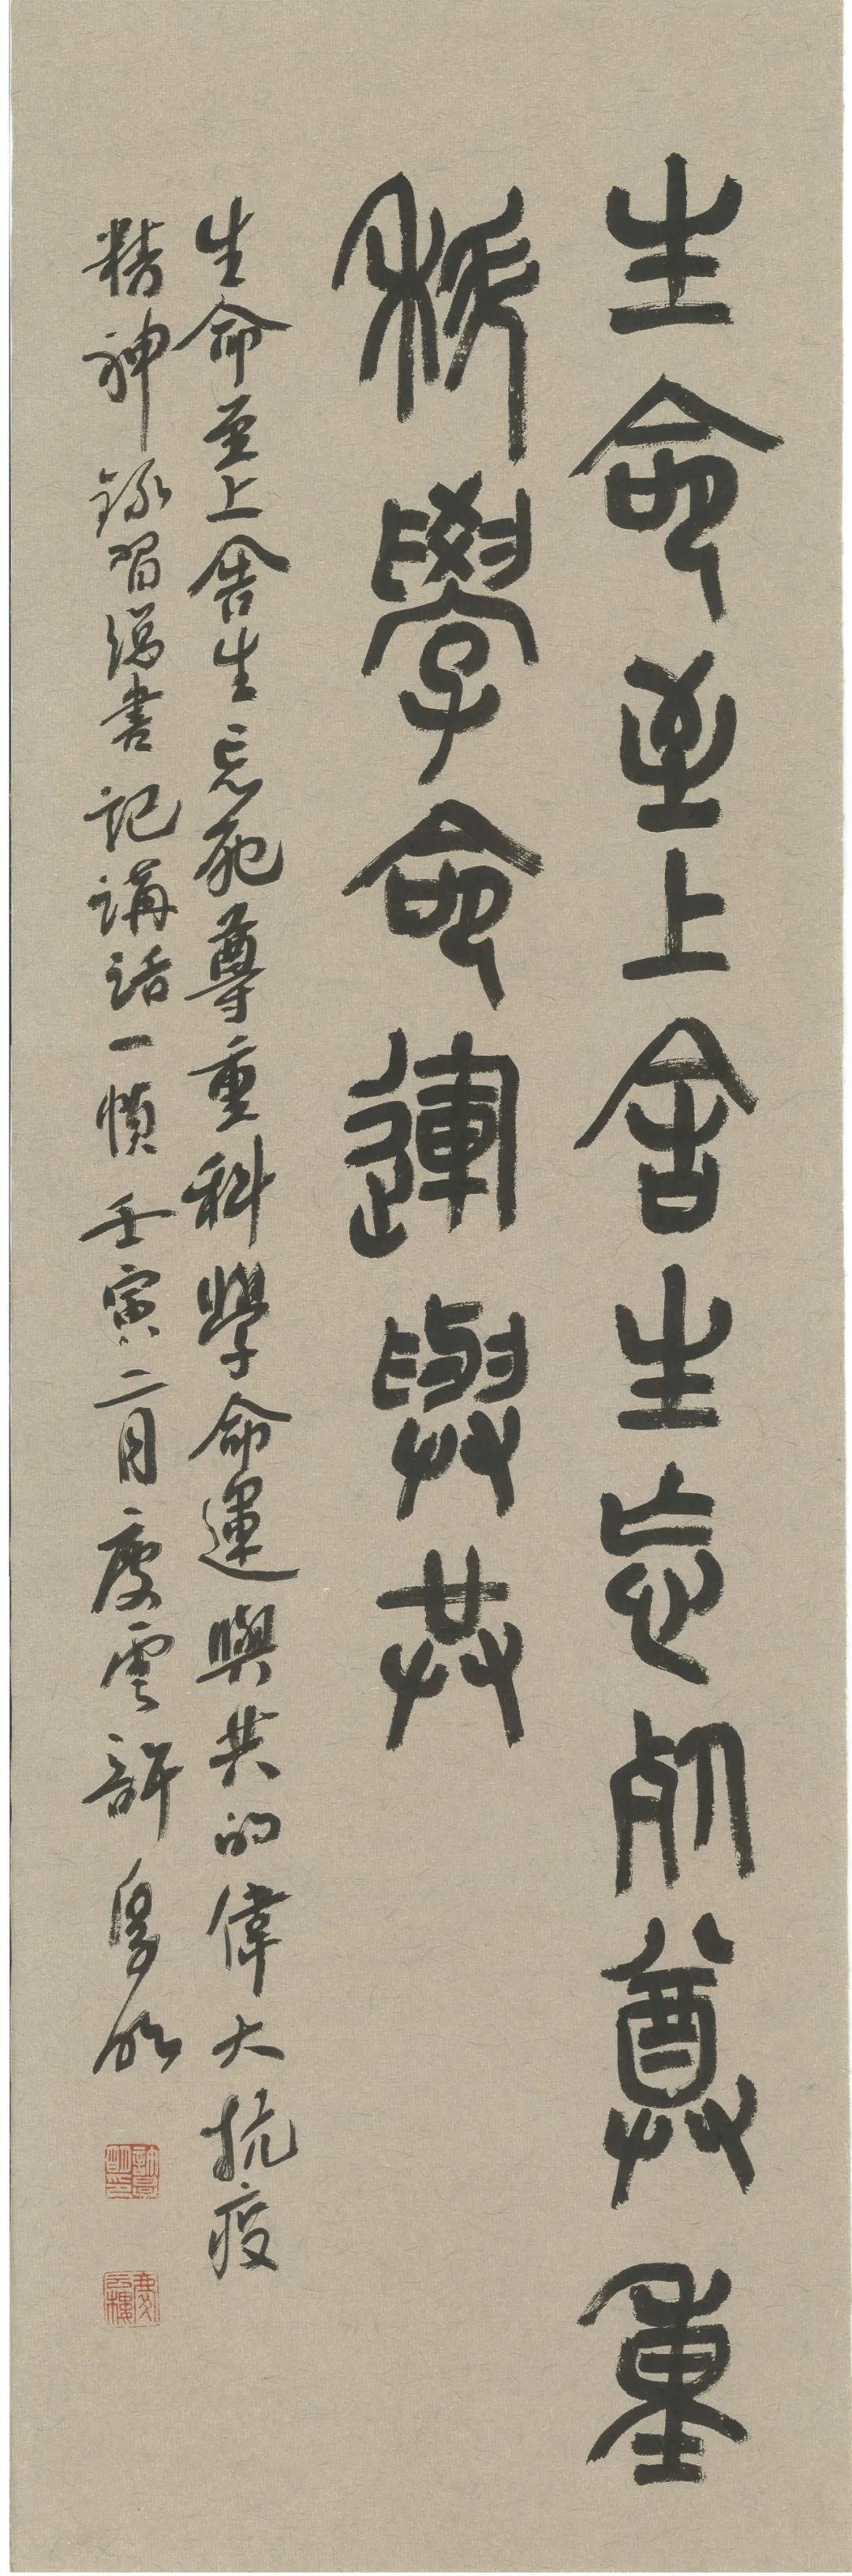 生命至上舍生忘死尊重
科學命運與共
生命至上舍生忘死尊重科學命運與共的偉大抗疫
精神錄習總書記講話一幀壬寅二月慶雲許